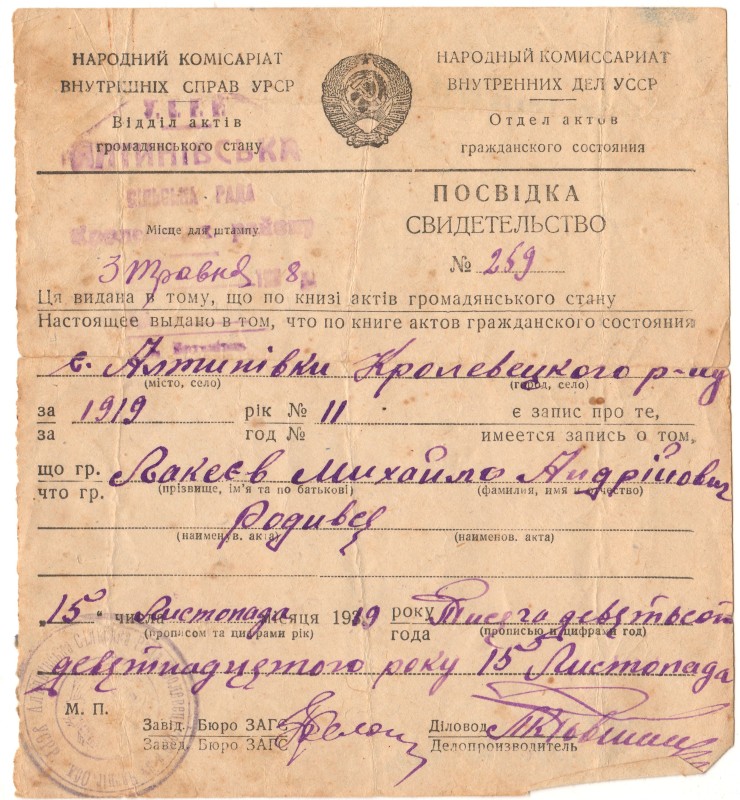 НАРОДНИЙ КОМІСАРІАТ
ВНУТРІШНІХ СПРАВ УРСР
Відділ актів
громадянського стану
НАРОДНЫЙ КОМИССАРИАТ
ВНУТРЕННИХ ДЕЛ УССР
Отдел актов
гражданского состояния
СІЛЬСЬКА РАДА
Місце для штампу
3 травня 8
ПОСВІДКА
СВИДЕТЕЛЬСТВО
№ 259
Ця видана в тому, що по книзі актів громадянського стану
Настоящее выдано в том, что по книге актов гражданского состояния
с. Алтинівки Кролевецкого р-ну
(місто, село) (город, село)
за 1919 рік № 11 є запис про те,
за год № имеется запись о том,
що гр. Лакеєв Михайло Андрійович
что гр. (прізвище, ім'я та по батькові) (фамилия, имя и отчество)
Родився
(наименув. акта) (наименов. акта)
"15" числа Листопада місяця 1919 року Тисеча девятьсот
(прописом та цифрами рік) года (прописью и цифрами год)
девятнадцятого року 15 Листопада
М. П.
Завід. Бюро ЗАГС Діловод
Завед. Бюро ЗАГС Делопроизводитель